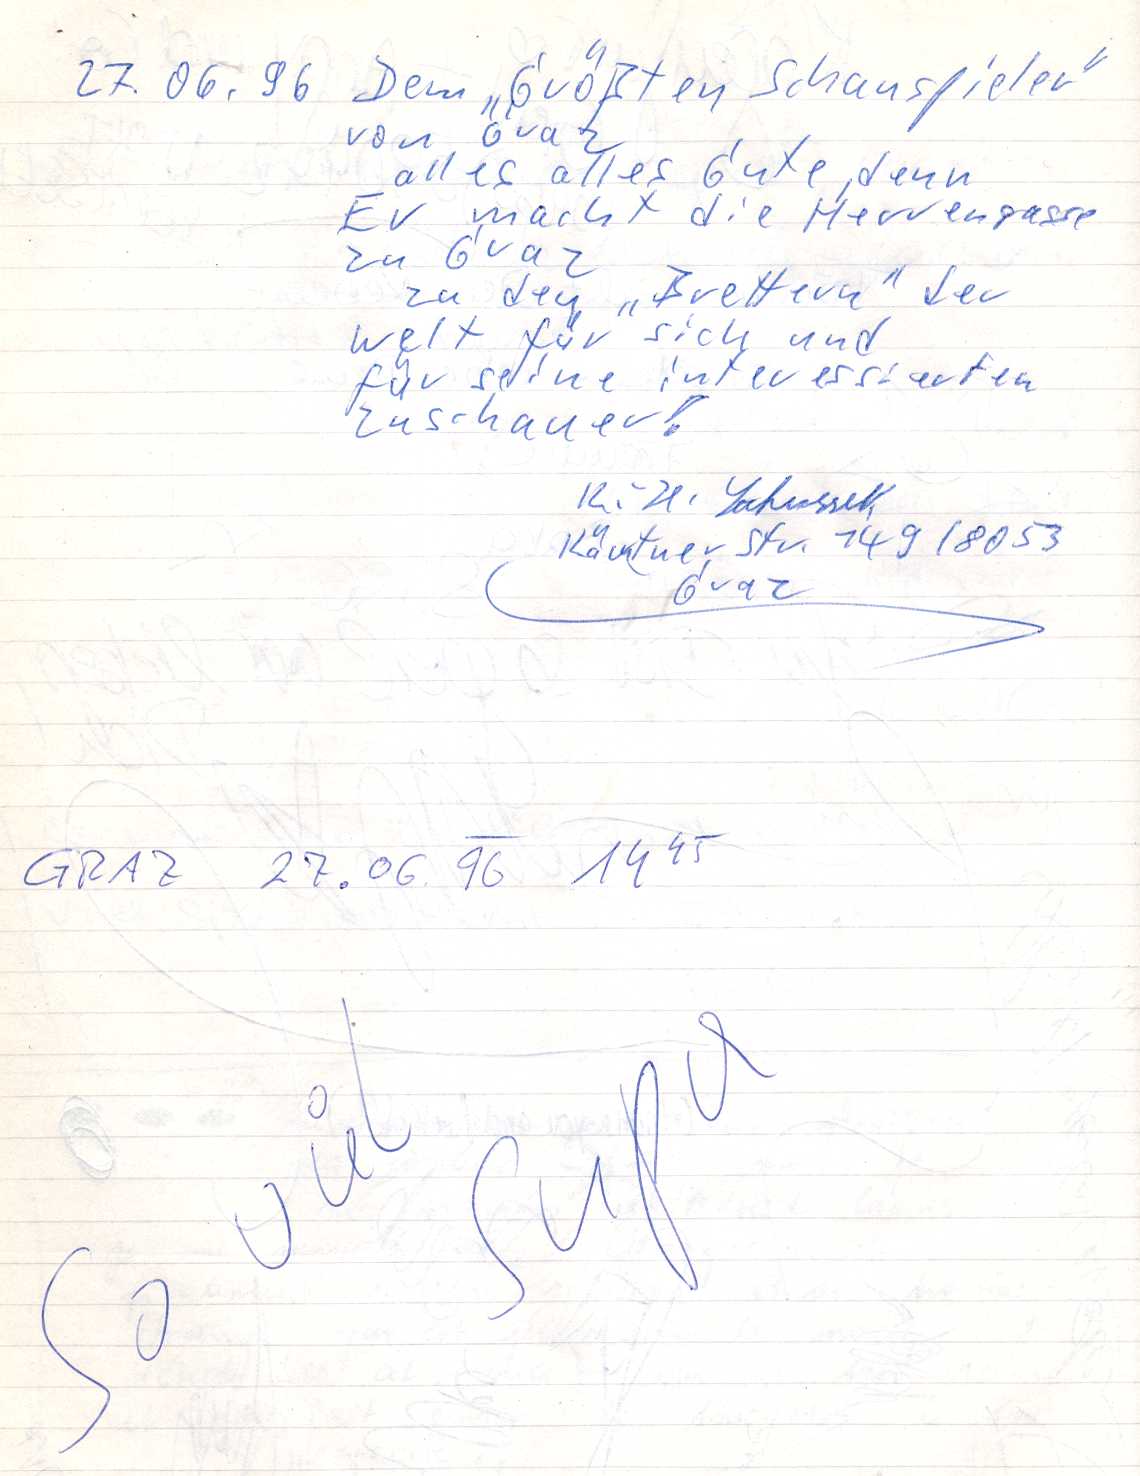 27. 06. 96 Dem „Größten Schauspieler"
von Graz
alles alles Gute, denn
Er macht die Herrengasse
zu Graz
zu den „Brettern" der
Welt für sich und
für seine interessierten
Zuschauer!
K. H.
Kärntner Str. 149 / 8053
Graz
GRAZ 27.06.96 14 45
So viel
Supa